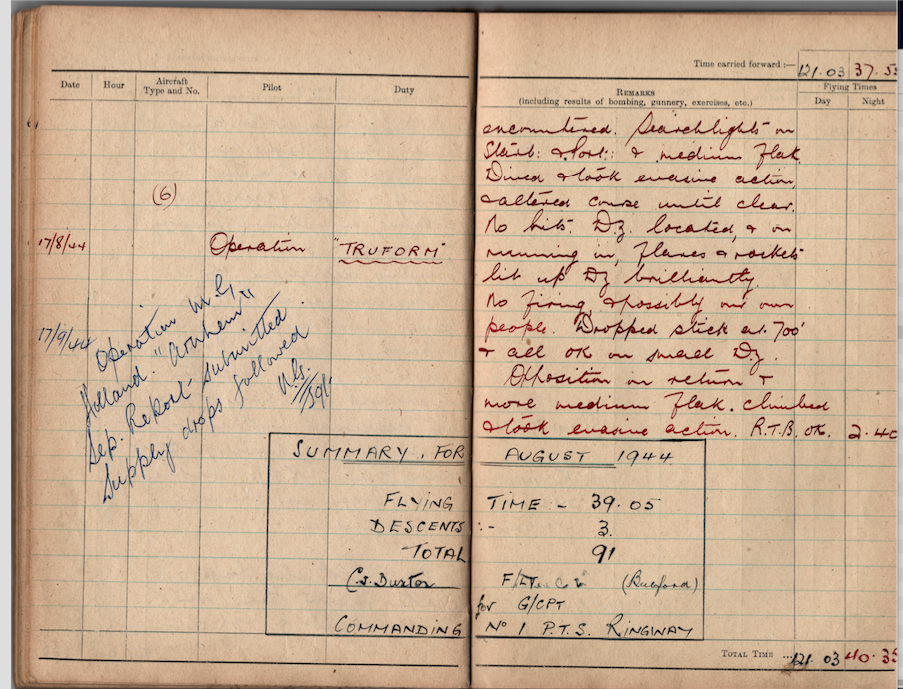 Date Hour Aircraft Type and No. Pilot Duty
(6)
17/8/44 Operation "TRUFORM"
17/9/44 Operation M.G
Holland. "Arnhem"
Sep. Report submitted
Supply drops followed
SUMMARY. FOR
FLYING
DESCENTS
TOTAL
COMMANDING
Time carried forward :— 121.03 37.55
REMARKS
(including results of bombing, gunnery, exercises, etc.)
Flying Times
Day Night
encountered. Searchlights on
Starb: & Port: & medium Flak.
Dived & took evasive action,
& altered course until clear.
No hits. D.Z. located, & on
running in, flares & rockets
lit up DZ brilliantly.
No firing, & possibly our own
people. Dropped stick at 700'
& all OK on small D.Z.
Opposition on return &
more medium Flak. climbed
& took evasive action. R.T.B. OK. 2.40
AUGUST 1944
TIME - 39.05
:- 3.
91
F/Lt. (Bulford)
for G/CPT
No 1 P.T.S. RINGWAY
TOTAL TIME ... 121.03 40.35